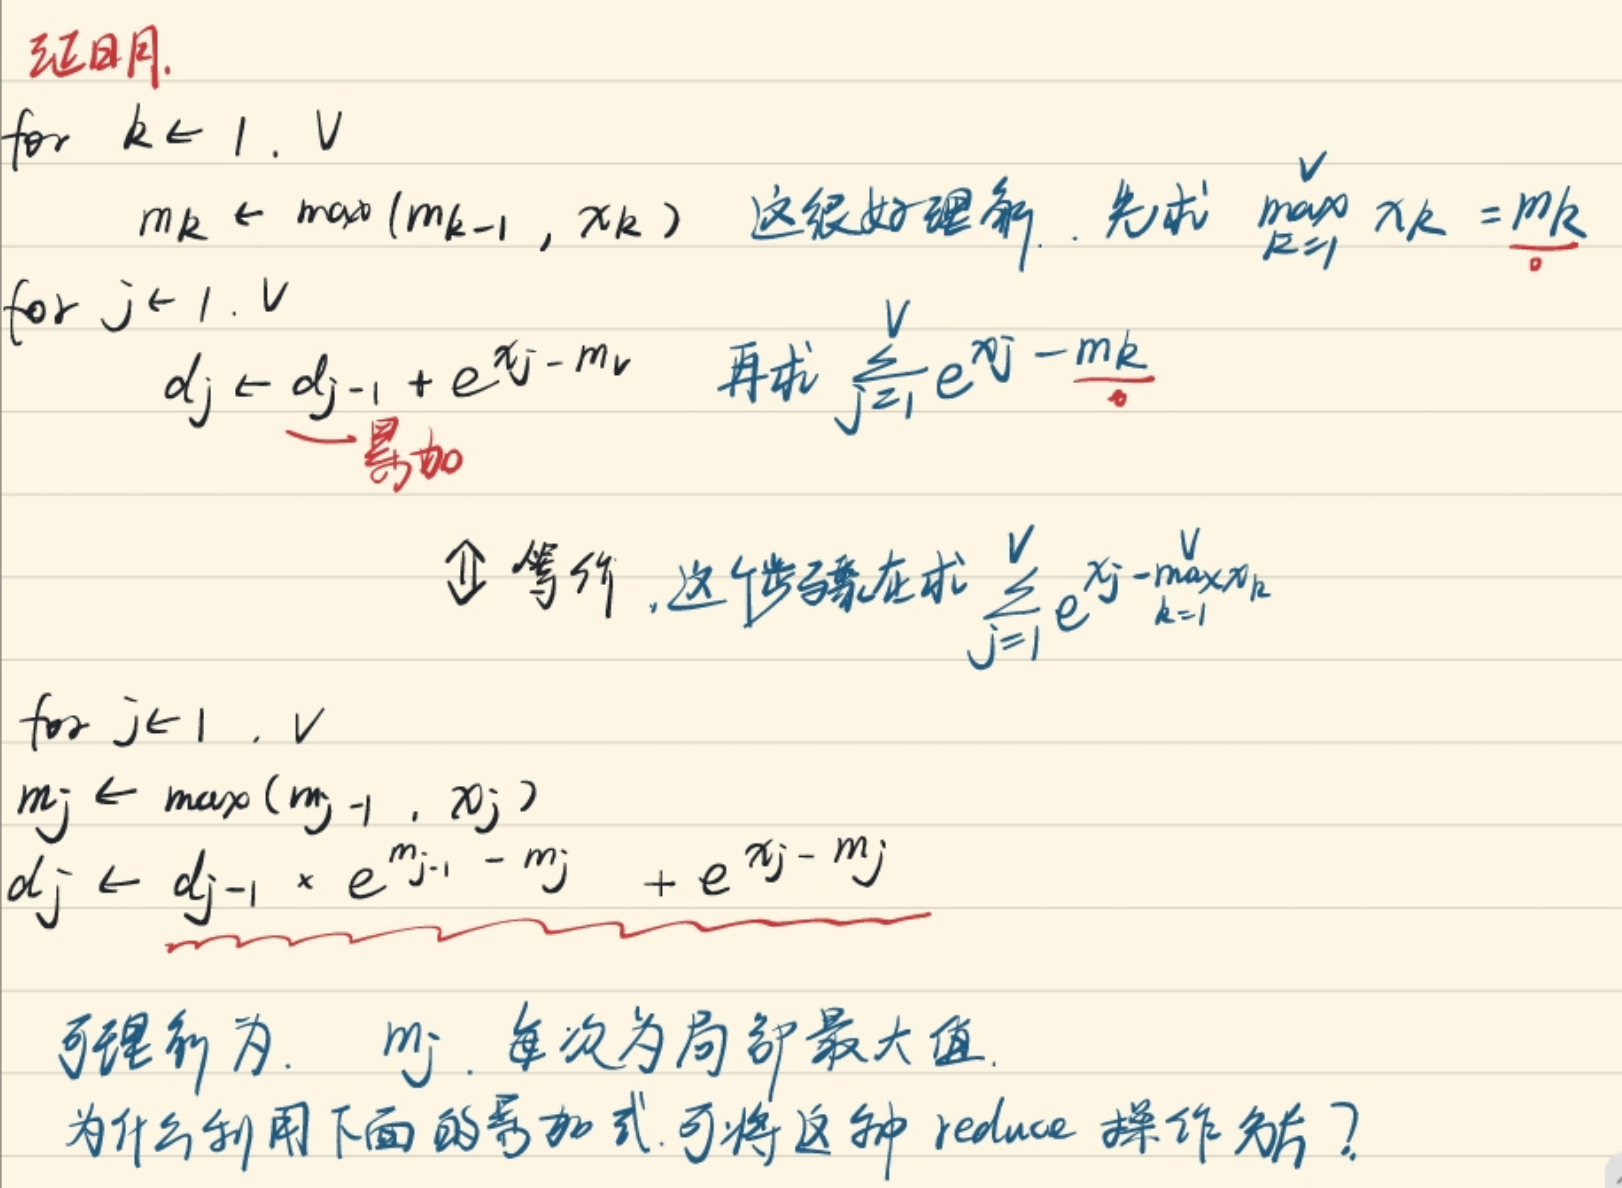 证明.
for k ← 1. V
m_k ← max(m_{k-1}, x_k) 这很好理解.. 先求 max_{k=1}^{V} x_k = m_k
for j ← 1. V
d_j ← d_{j-1} + e^{x_j - m_V} 再求 Σ_{j=1}^{V} e^{x_j - m_k}
累加
⇕ 等价,这个步骤在求 Σ_{j=1}^{V} e^{x_j - max_{k=1}^{V} x_k}
for j ← 1. V
m_j ← max(m_{j-1}, x_j)
d_j ← d_{j-1} × e^{m_{j-1} - m_j} + e^{x_j - m_j}
可理解为. m_j. 每次为局部最大值.
为什么利用下面的累加式.可将这种 reduce 操作 ?